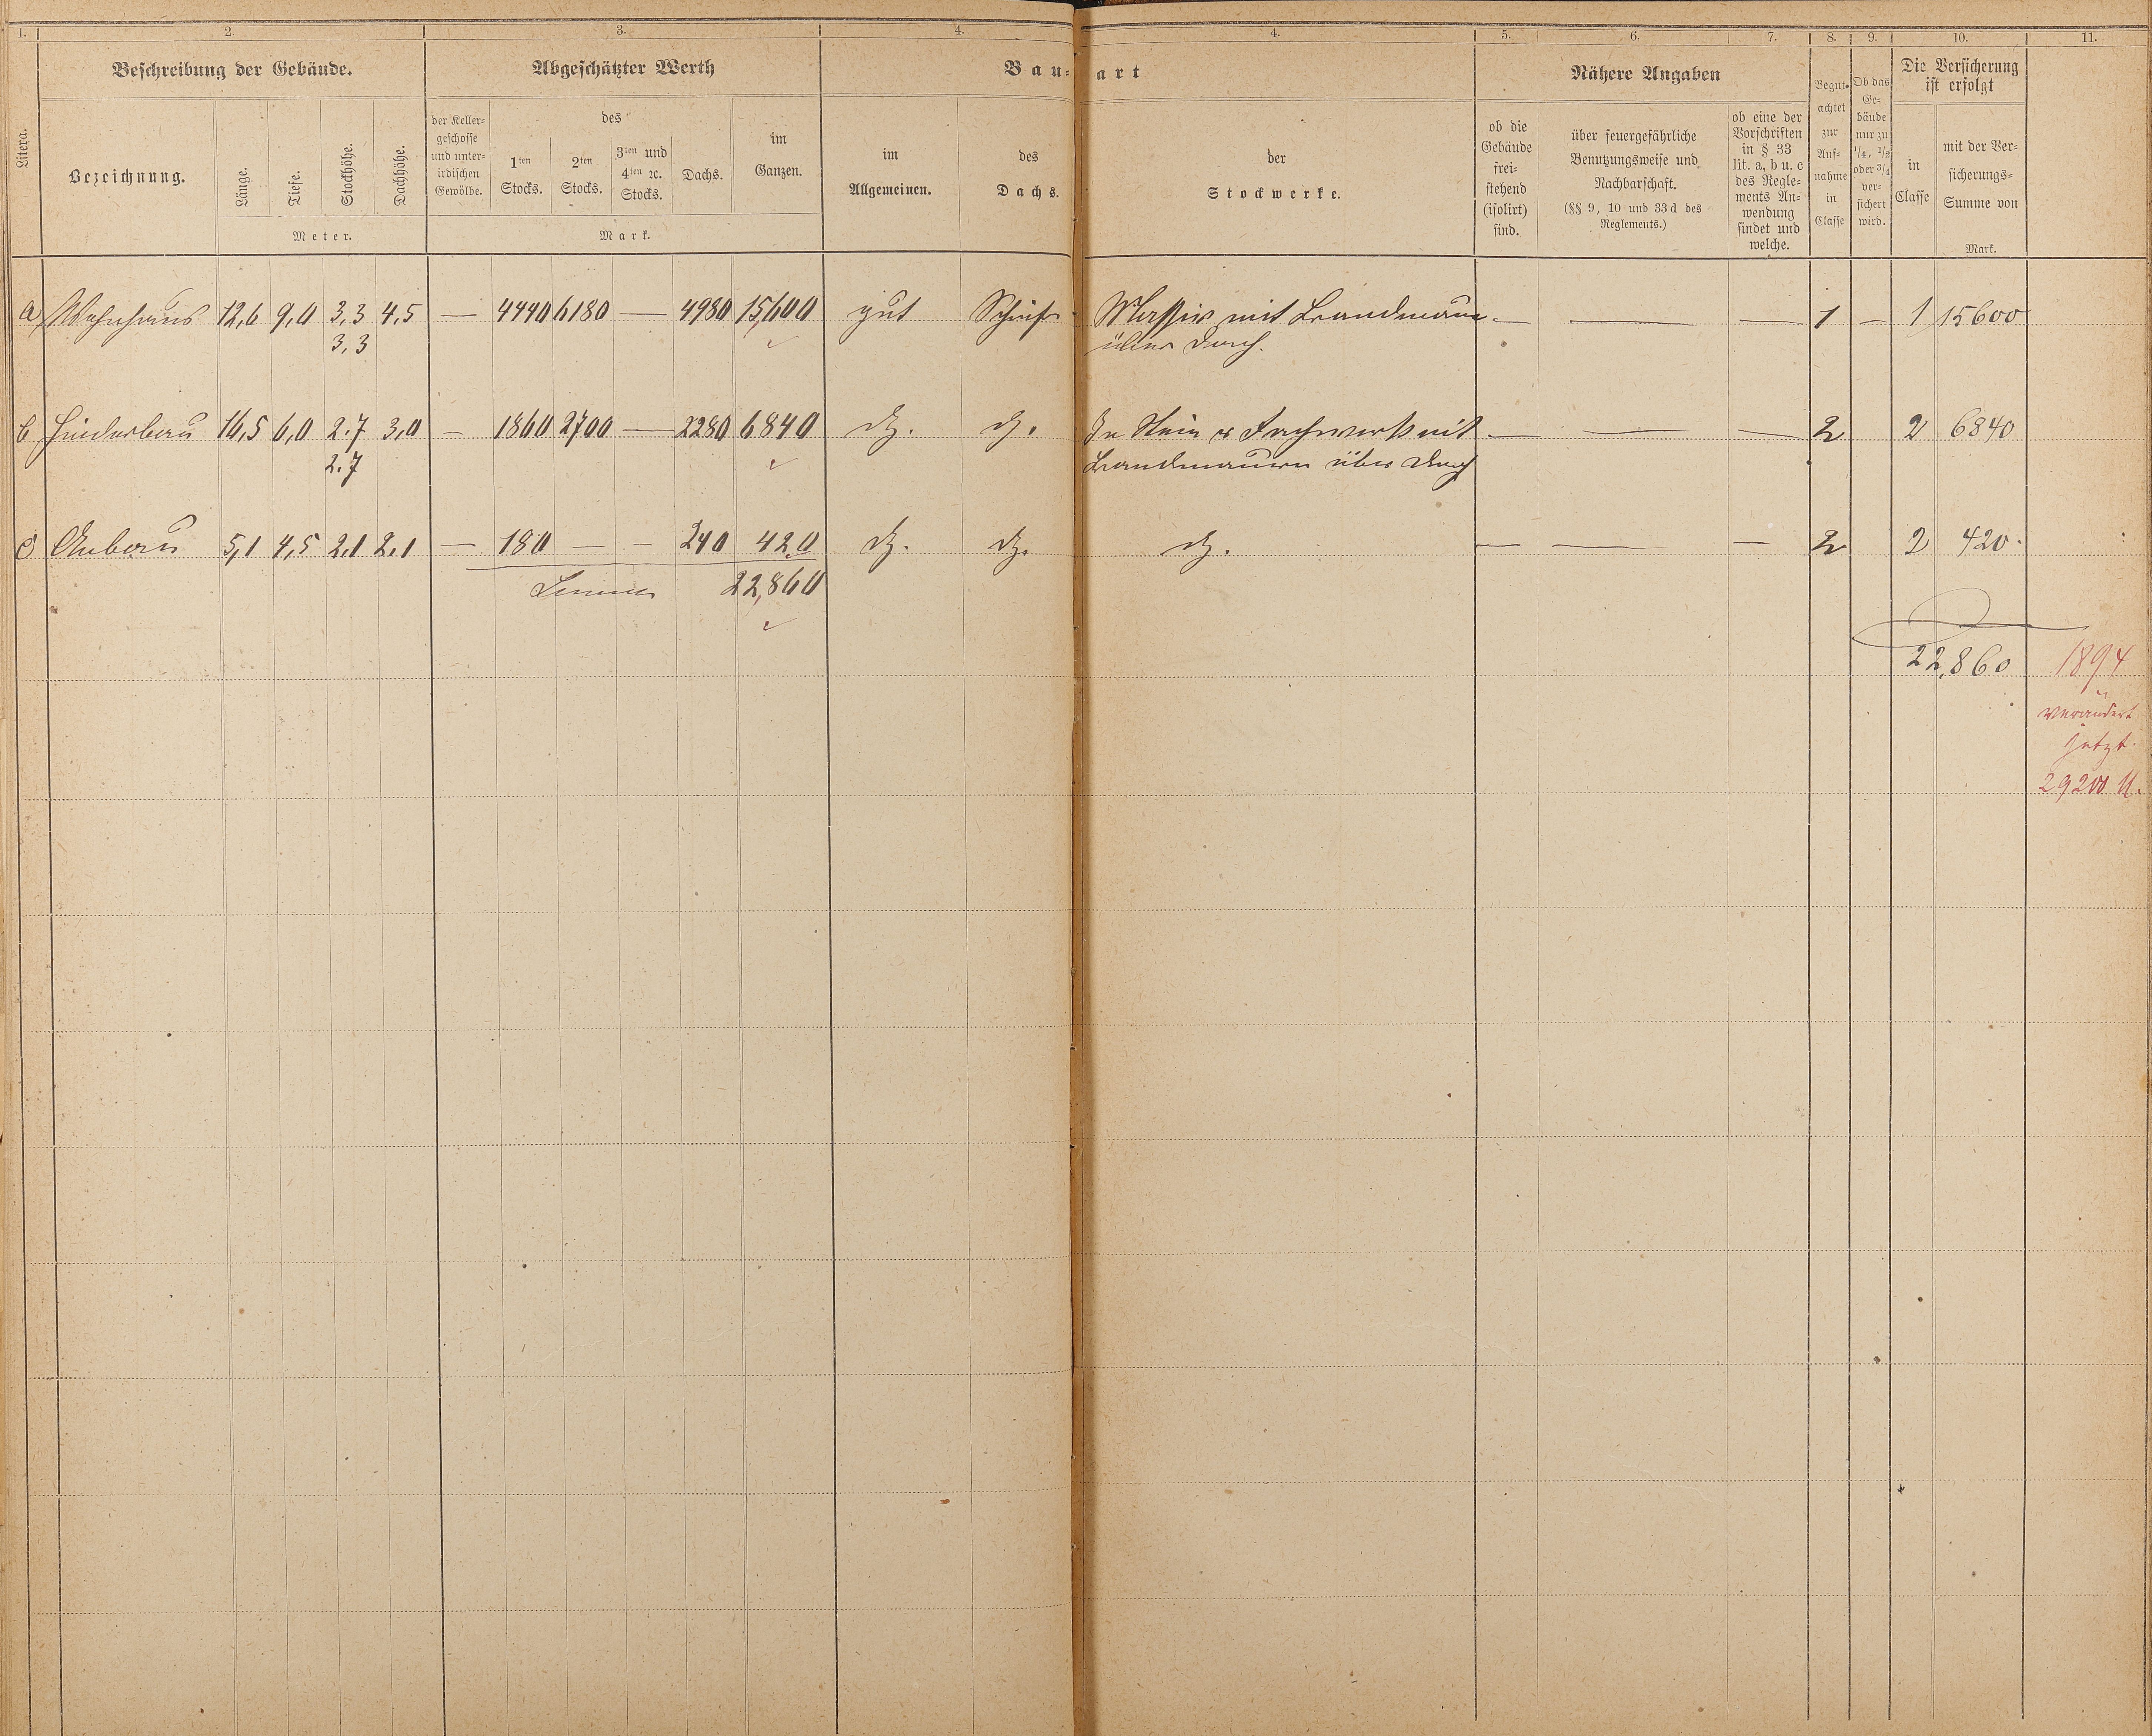 1. 2. 3. 4. 4. 5. 6. 7. 8. 9. 10. 11.
Beschreibung der Gebäude. Abgeschätzter Werth Bau- art Nähere Angaben Die Versicherung
ist erfolgt
Litera.
Bezeichnung.
Länge.
Tiefe.
Stockhöhe.
Dachhöhe.
Meter.
der Keller-
geschosse
und unter-
irdischen
Gewölbe.
des
1ten
Stocks.
2ten
Stocks.
3ten und
4ten ec.
Stocks.
Dachs.
im
Ganzen.
Mark.
im
Allgemeinen.
des
Dachs.
der
Stockwerke.
ob die
Gebäude
frei-
stehend
(isolirt)
sind.
über feuergefährliche
Benutzungsweise und
Nachbarschaft.
(§§ 9, 10 und 33 d des
Reglements.)
ob eine der
Vorschriften
in § 33
lit. a, b u. c
des Regle-
ments An-
wendung
findet und
welche.
Begut-
achtet
zur
Auf-
nahme
in
Classe
Ob das
Ge-
bäude
nur zu
1/4, 1/2
oder 3/4
ver-
sichert
wird.
in
Classe
mit der Ver-
sicherungs-
Summe von
Mark.
a Wohnhaus 12,6 9,0 3,3 4,5 — 4440 6180 — 4980 15,600 gut Schiefer Massiv mit Brandmauer — — — 1 — 1 15600
3,3 über Dach.
b Hinterbau 16,5 6,0 2.7 3,0 — 1860 2700 — 2280 6840 do. do. In Stein u Fachwerk mit — — — 2 2 6840
2.7 Brandmauern über Dach
c Anbau 5,1 4,5 2.1 2.1 — 180 — — 240 420 do. do. do. — — — 2 2 420.
Summa 22,860
22,860 1894
verändert
jetzt.
29200 M.